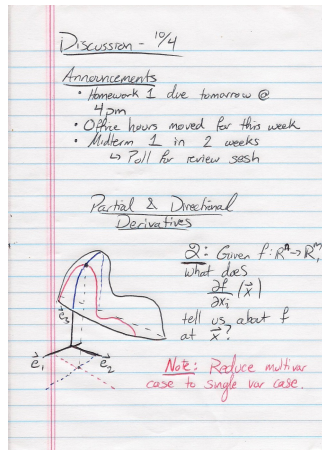 Discussion - 10/4
Announcements
• Homework 1 due tomorrow @
4pm
• Office hours moved for this week
• Midterm 1 in 2 weeks
↳ Poll for review sesh
Partial & Directional
Derivatives
Q: Given f: ℝⁿ→ℝᵐ,
what does
∂f/∂xᵢ (x⃗)
tell us about f
at x⃗?
e⃗₃
e⃗₁ e⃗₂
Note: Reduce multivar
case to single var case.